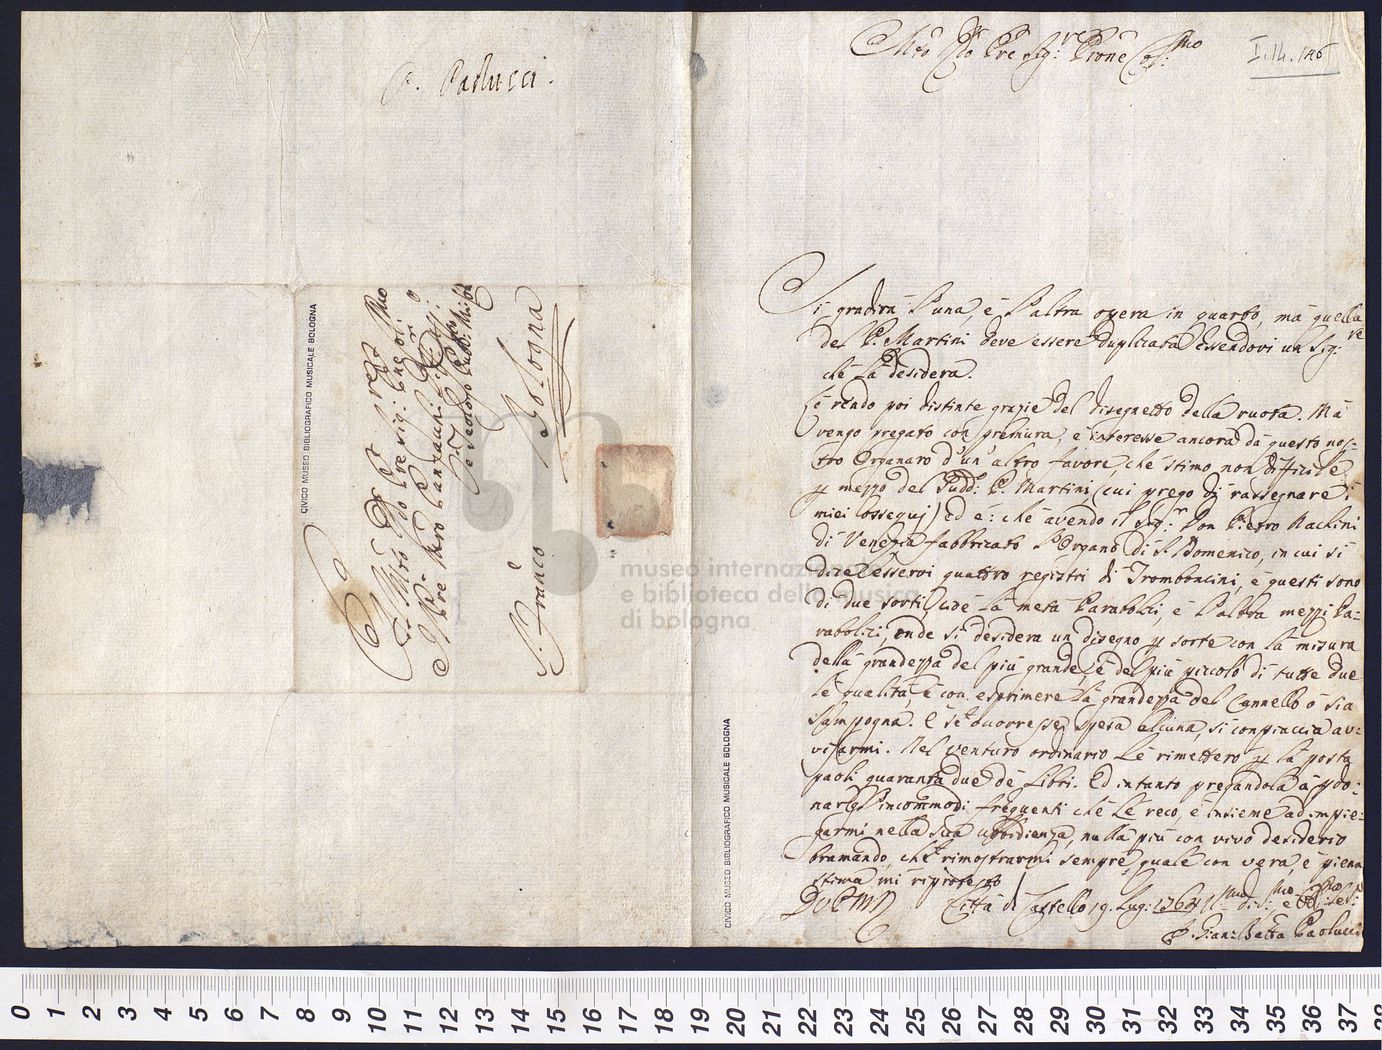 P. Paolucci.
Al Molto Rdo Pre Sig: Pne Col:mo
Il Pre Mro Lanzauchi
e Teologo Pub: Min: Con:
S. Franco Bologna
CIVICO MUSEO BIBLIOGRAFICO MUSICALE BOLOGNA
museo internazionale
e biblioteca della musica
di bologna
Mto Rdo Pre Sig:re Prone Col:mo
I.14.146
Si gradirà l'una, e l'altra opera in quarto, mà quella
del P. Martini deve essere duplicata essendovi un Sig:re
che la desidera.
Le rendo poi distinte grazie del disegnetto della ruota. Mà
vengo pregato con premura, e interesse ancora da questo nos-
tro Organaro d'un'altro favore, che stimo non difficile
p mezzo del Sudd: P. Martini (cui prego di rassegnare i
miei ossequj) ed è: che avendo il Sig:r Don Pietro Nachini
di Venezia fabbricato l'Organo di S. Domenico, in cui si
dice esservi quattro registri di Tromboncini, e questi sono
di due sorti, cioè la metà Parabolici, e l'altra mezzi Pa=
rabolici, onde si desidera un disegno p sorte con la misura
della grandezza del più grande, e del più piccolo di tutte due
le qualità, e con esprimere la grandezza del Cannello ò sia
Sampogna. E se occorresse spesa alcuna, si compiaccia av=
visarmi. Nel venturo ordinario Le rimetterò p la posta
paoli quaranta due de Libri. Ed intanto pregandola à pdo=
narle l'incommodi frequenti che Le reco, e insieme ad impie=
garmi nella sua ubbidienza, nulla più con vivo desiderio
bramando, che rimostrarmi sempre, quale con vera, e piena
stima mi riprotesto
Di V. P. M. R. Città di Castello 19. Lug: 1764
P. Gian: Batta Paolucci
CIVICO MUSEO BIBLIOGRAFICO MUSICALE BOLOGNA
0 1 2 3 4 5 6 7 8 9 10 11 12 13 14 15 16 17 18 19 20 21 22 23 24 25 26 27 28 29 30 31 32 33 34 35 36 37